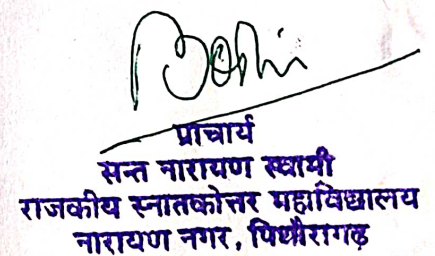 प्राचार्य
सन्त नारायण स्वामी
राजकीय स्नातकोत्तर महाविद्यालय
नारायण नगर, पिथौरागढ़